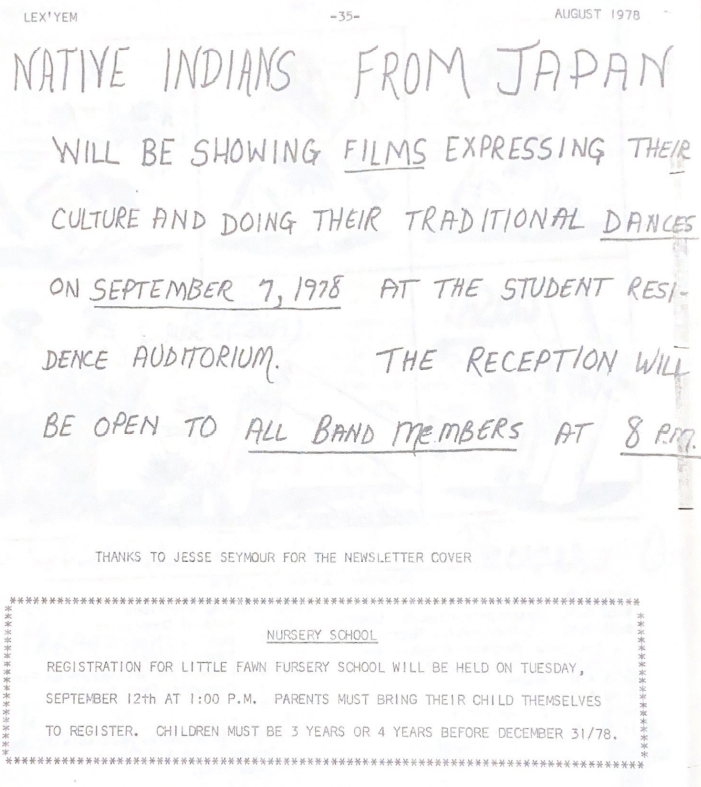 LEX'YEM -35- AUGUST 1978
NATIVE INDIANS FROM JAPAN
WILL BE SHOWING FILMS EXPRESSING THEIR
CULTURE AND DOING THEIR TRADITIONAL DANCES
ON SEPTEMBER 7, 1978 AT THE STUDENT RESI-
DENCE AUDITORIUM. THE RECEPTION WILL
BE OPEN TO ALL BAND MEMBERS AT 8 P.M.
THANKS TO JESSE SEYMOUR FOR THE NEWSLETTER COVER
NURSERY SCHOOL
REGISTRATION FOR LITTLE FAWN FURSERY SCHOOL WILL BE HELD ON TUESDAY,
SEPTEMBER 12th AT 1:00 P.M. PARENTS MUST BRING THEIR CHILD THEMSELVES
TO REGISTER. CHILDREN MUST BE 3 YEARS OR 4 YEARS BEFORE DECEMBER 31/78.